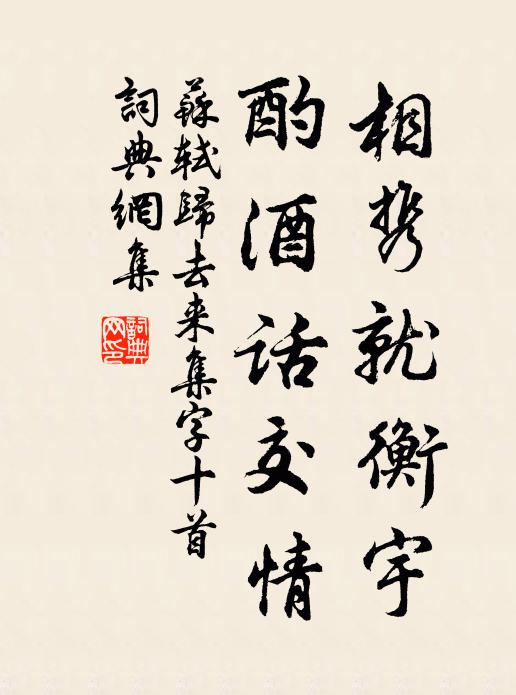 相携就衡宇
酌酒話交情
蘇軾歸去来集字十首
詞典網集
詞典网印